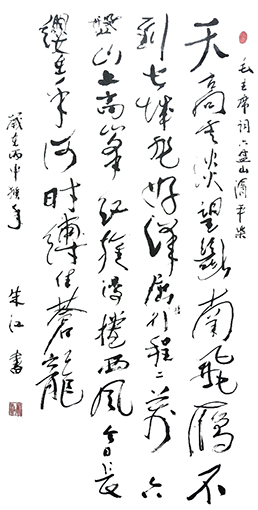 毛主席词六盘山清平樂
天高云淡望断南飛雁不
到长城非好汉屈指行程二万六
盤山上高峯红旗漫捲西风今日长
缨在手何时缚住苍龙
歲在丙申猴年
朱江書